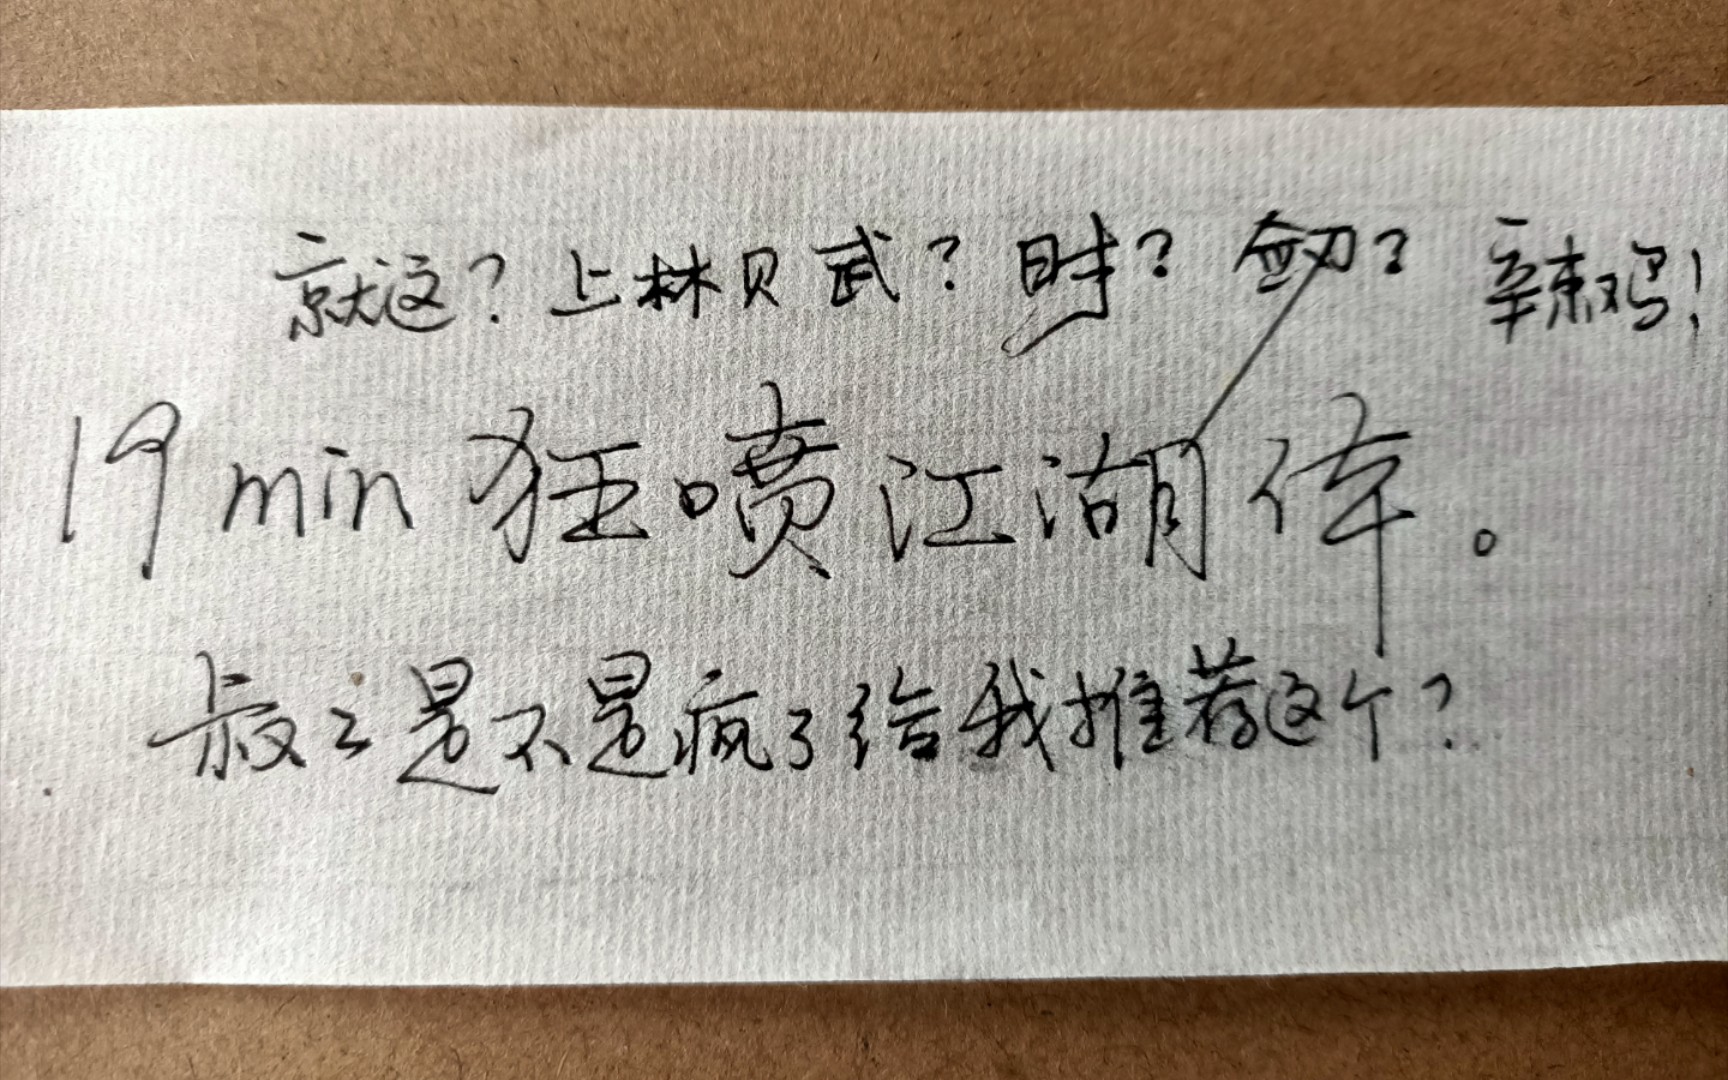 就这？上林贝武？时？剑？辣鸡！
19min 狂喷江湖体。
叔叔是不是疯了给我推荐这个？